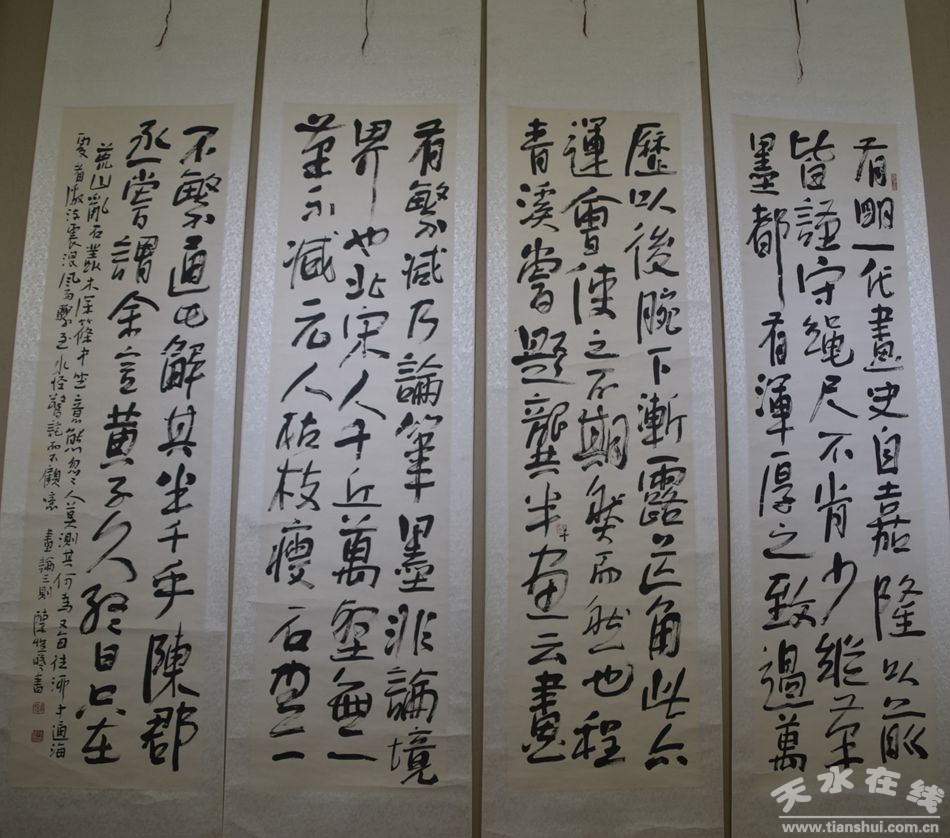 有明一代畫史自嘉隆以前
皆謹守繩尺不肯少縱其筆
墨都有渾厚之致過萬
歷以後腕下漸露芒角此亦
運會使之不期然而然也程
青溪嘗題龔半千畫云畫
有繁減乃論筆墨非論境
界也北宋人千丘萬壑無一
筆不減元人枯枝瘦石無一
不繁通此解其半千乎陳郡
丞嘗謂余言黃子久終日只在
荒山亂石叢木深篠中坐意態忽忽人莫測其何為又每往泖中通海
處看激流轟浪風雨驟至水怪驚詫而不顧噫 畫論三則 陳書
天水在线
www.tianshui.com.cn